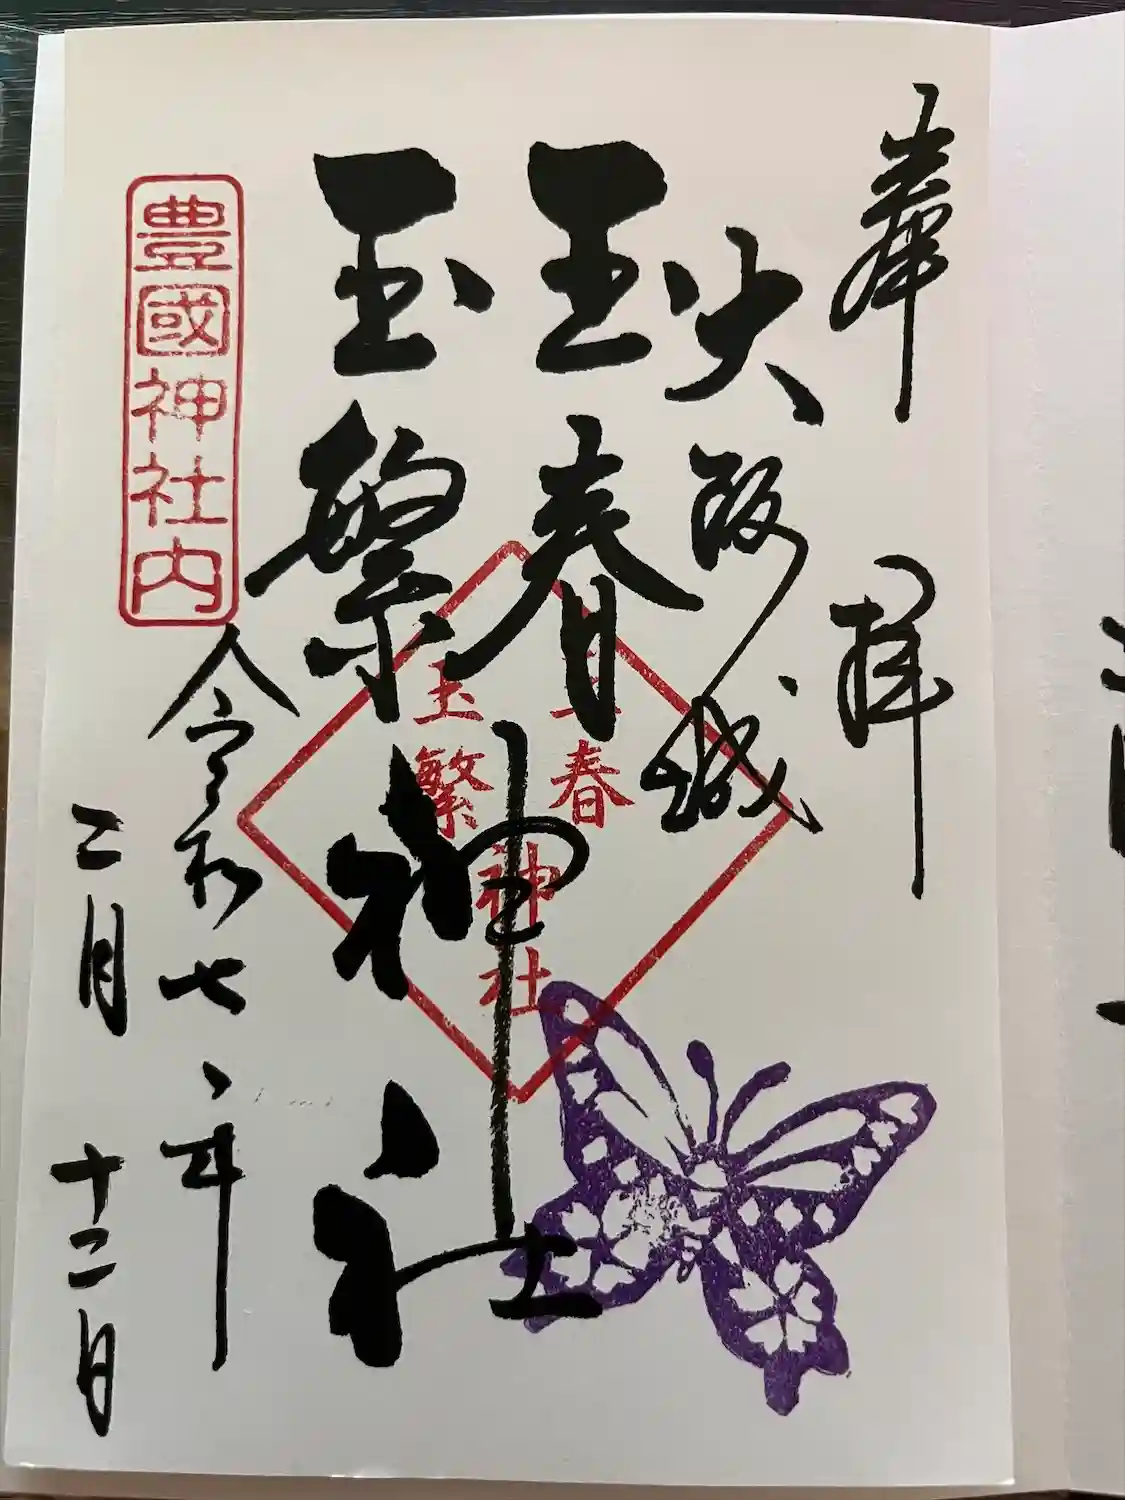 奉拝
大阪城
王春
玉繁
神社
令和七年
二月十二日
豊國神社内
王春
玉繁
神社